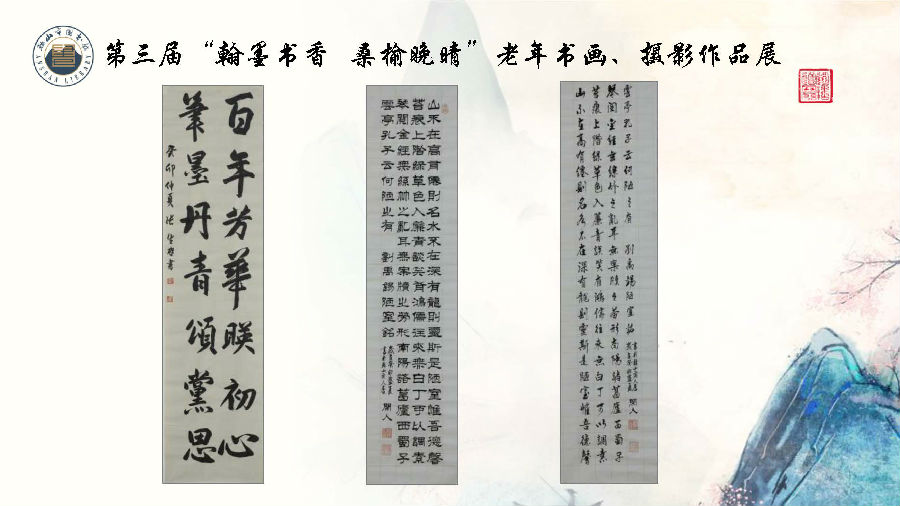 第三届“翰墨书香 桑榆晚晴”老年书画、摄影作品展
百年芳華映初心
筆墨丹青頌黨恩
癸卯仲夏
山不在高有僊則名水不在深有龍則靈斯是陋室惟吾德馨
苔痕上階綠草色入簾青談笑有鴻儒往來無白丁可以調素
琴閱金經無絲竹之亂耳無案牘之勞形南陽諸葛廬西蜀子
雲亭孔子云何陋之有 劉禹錫陋室銘
山不在高有僊則名水不在深有龍則靈斯是陋室惟吾德馨
苔痕上階綠草色入簾青談笑有鴻儒往來無白丁可以調素
琴閱金經無絲竹之亂耳無案牘之勞形南陽諸葛廬西蜀子
雲亭孔子云何陋之有 劉禹錫陋室銘